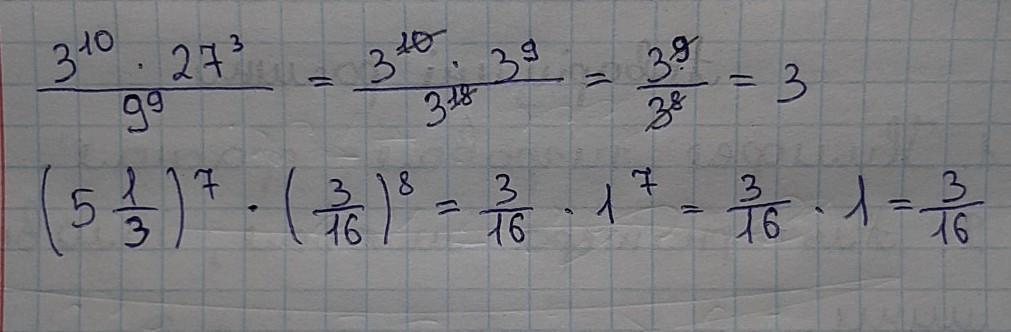 3^10 · 27^3 / 9^9 = 3^10 · 3^9 / 3^18 = 3^9 / 3^8 = 3
(5 1/3)^7 · (3/16)^8 = 3/16 · 1^7 = 3/16 · 1 = 3/16